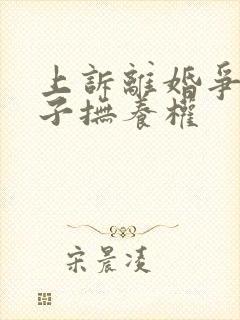 上訴離婚爭
子撫養權
宋晨凌